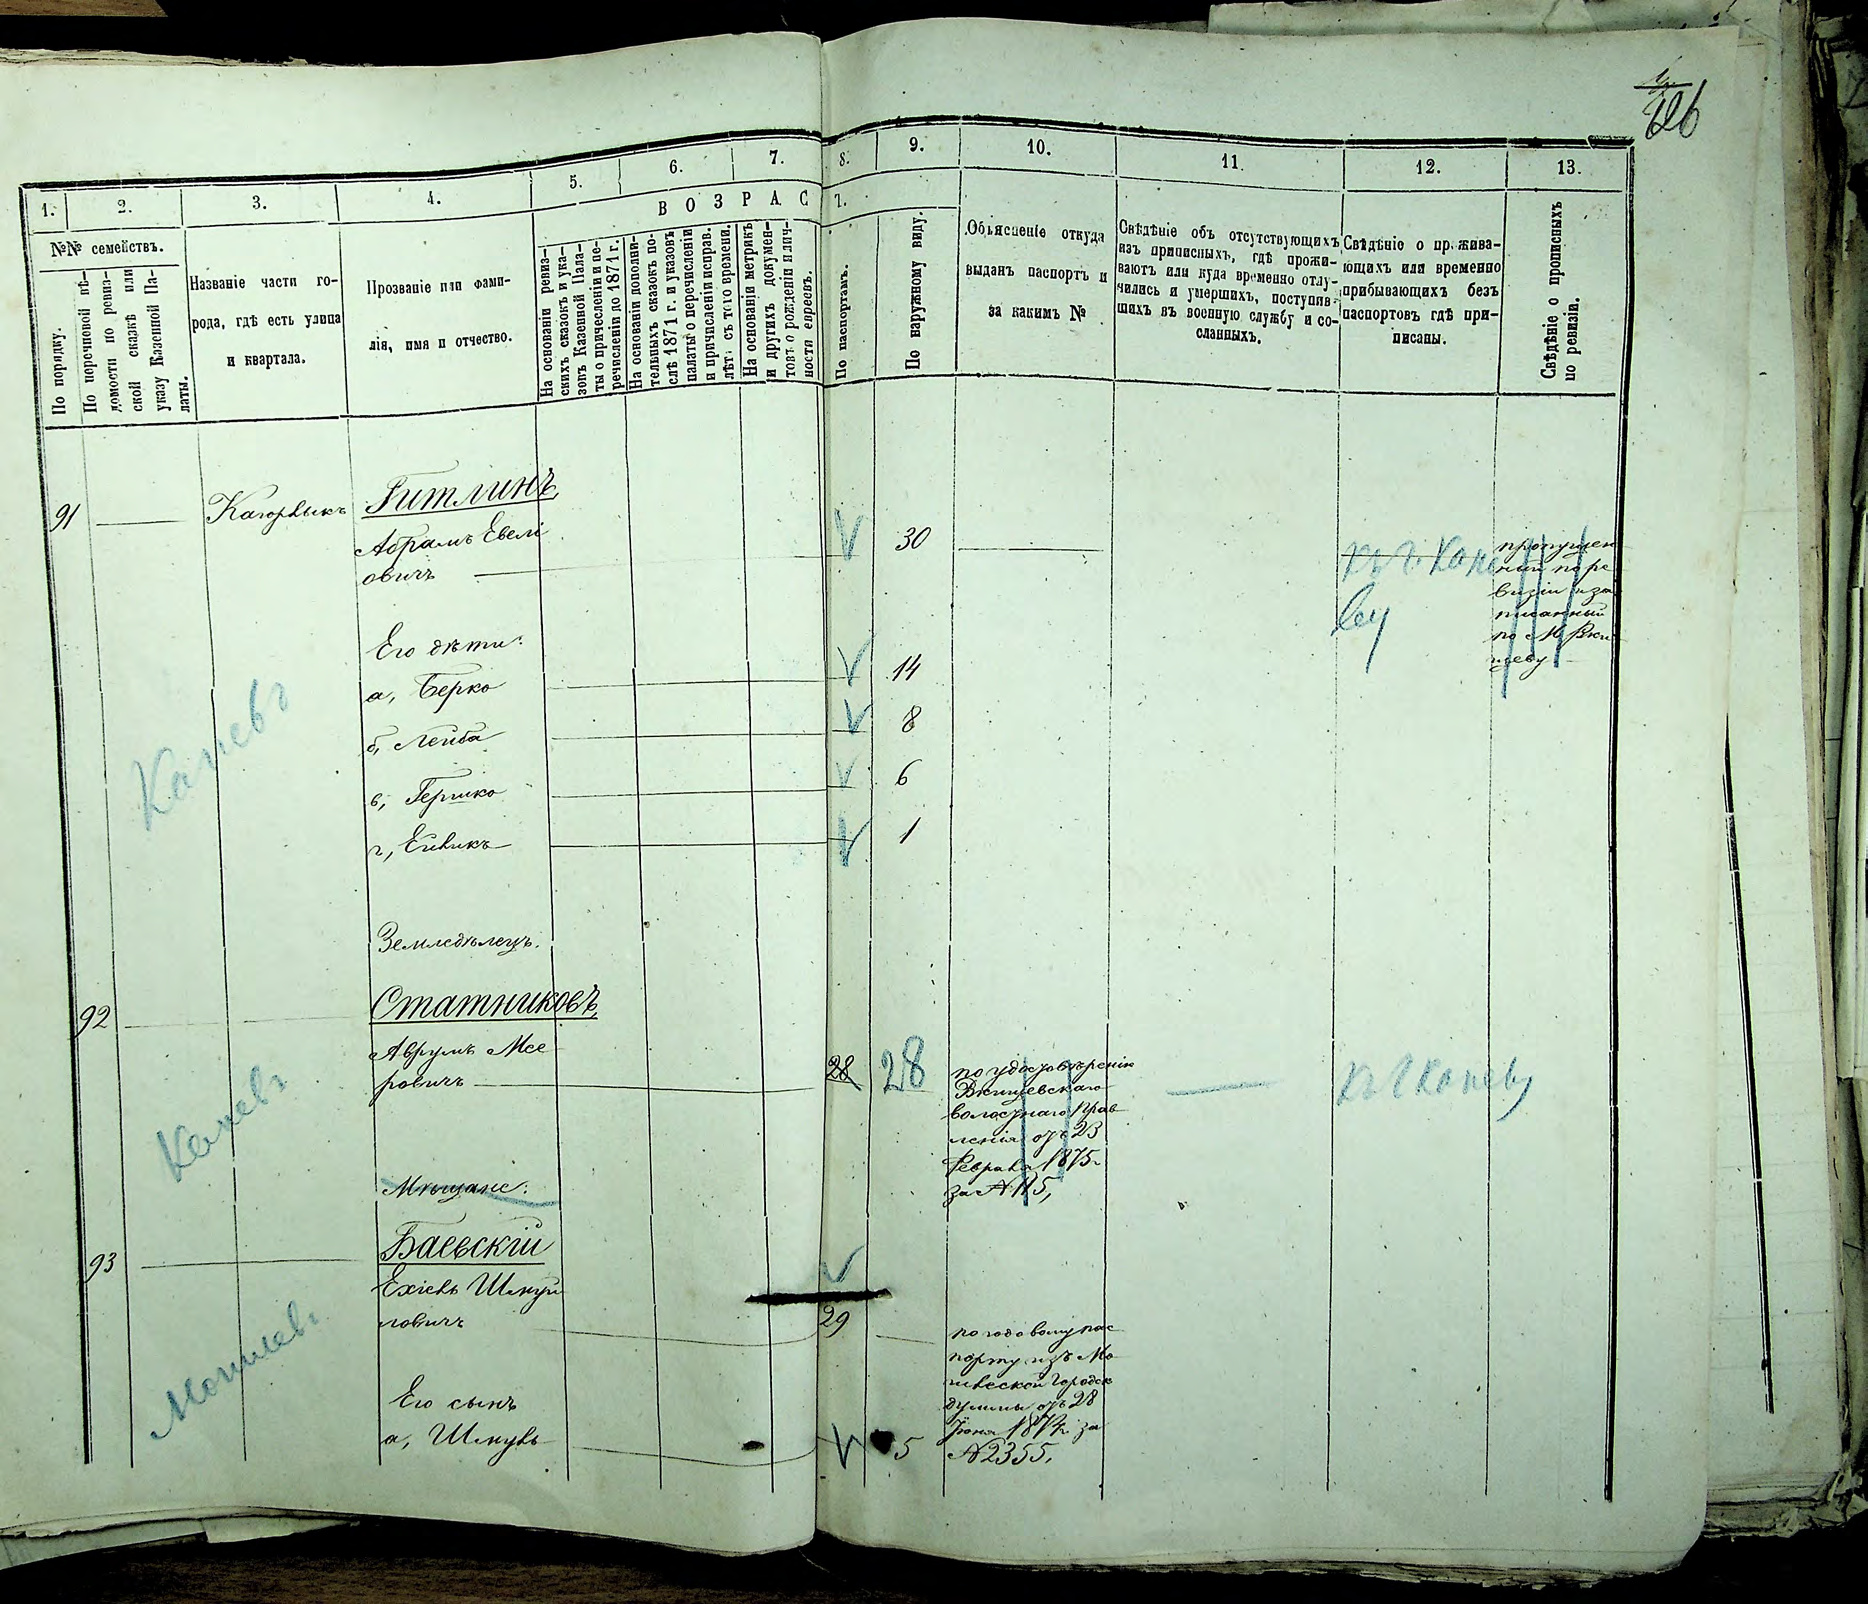 126
1.
2.
3.
4.
5.
6.
7.
8.
9.
10.
11.
12.
13.
№№ семействъ.
По порядку.
По перечневой вѣ-
домости по ревиз-
ской сказкѣ или
указу Казенной Па-
латы.
Названіе части го-
рода, гдѣ есть улица
и квартала.
Прозваніе или фами-
лія, имя и отчество.
ВОЗРАСТ.
На основаніи ревиз-
скихъ сказокъ и ука-
зовъ Казенной Пала-
ты о причисленіи и пе-
речисленіи до 1871 г.
На основаніи дополни-
тельныхъ сказокъ по-
слѣ 1871 г. и указовъ
палаты о перечисленіи
и причисленіи исправ.
лѣт. съ того времени.
На основаніи метрикъ
и другихъ докумен-
товъ о рожденіи и лич-
ности евреевъ.
По паспортамъ.
По наружному виду.
Объясненіе откуда
выданъ паспортъ и
за какимъ №
Свѣдѣніе объ отсутствующихъ
изъ приписныхъ, гдѣ прожи-
ваютъ или куда временно отлу-
чились и умершихъ, поступив-
шихъ въ военную службу и со-
сланныхъ.
Свѣдѣніе о прожива-
ющихъ или временно
прибывающихъ безъ
паспортовъ гдѣ при-
писаны.
Свѣдѣніе о прописныхъ
по ревизіи.
91
Кагорлыкъ
Гитлинъ
Абрамъ Евелі
овичъ
30
къ г. Кане
ву
пропущен
ный по ре
визіи и за
писанный
по М.
Его дѣти:
а, Берко
14
б, Лейба
8
в, Гершко
6
г, Ейвикъ
1
Каневъ
Земледѣлецъ.
92
Статниковъ
Аврумъ Мее
ровичъ
28
28
по удостовѣренію
волостнаго Прав
ленія отъ 23
Февраля 1875 г.
за № 115,
къ г Каневу
Каневъ
Мѣщане:
93
Баевскій
Ехіель Шмуй
ловичъ
29
по годовому пас
порту изъ Мо
гилевской Городск
думы отъ 28
Іюня 1874 г за
№ 2355,
Могилевъ
Его сынъ
а, Шмуль
5